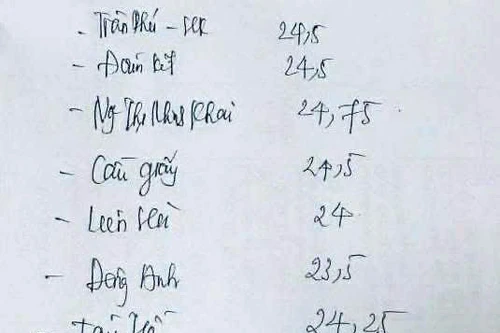 - Trần Phú - HK 24,5
- Đoàn Kết 24,5
- Ng Thị Minh Khai 24,75
- Cầu giấy 24,5
- 24
- Đông Anh 23,5
24,25